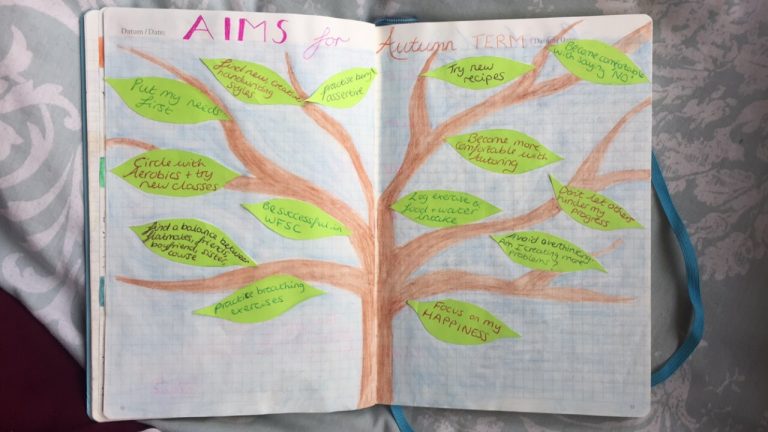 Datum / Date:
AIMS for Autumn TERM
Put my needs
first
Find new creative
handwriting
styles
practise being
assertive
Circle with
Aerobics + try
new classes
Be successful in
WFSC
Find a balance between
flatmates, friends,
boyfriend, sister
course
Practise breathing
exercises
Try new
recipes
Become comfortable
with saying 'NO'
Become more
comfortable with
tutoring
Log exercise &
food + water
intake
Don't let others
hinder my
progress
Avoid overthinking
Am I creating more
problems?
Focus on my
HAPPINESS